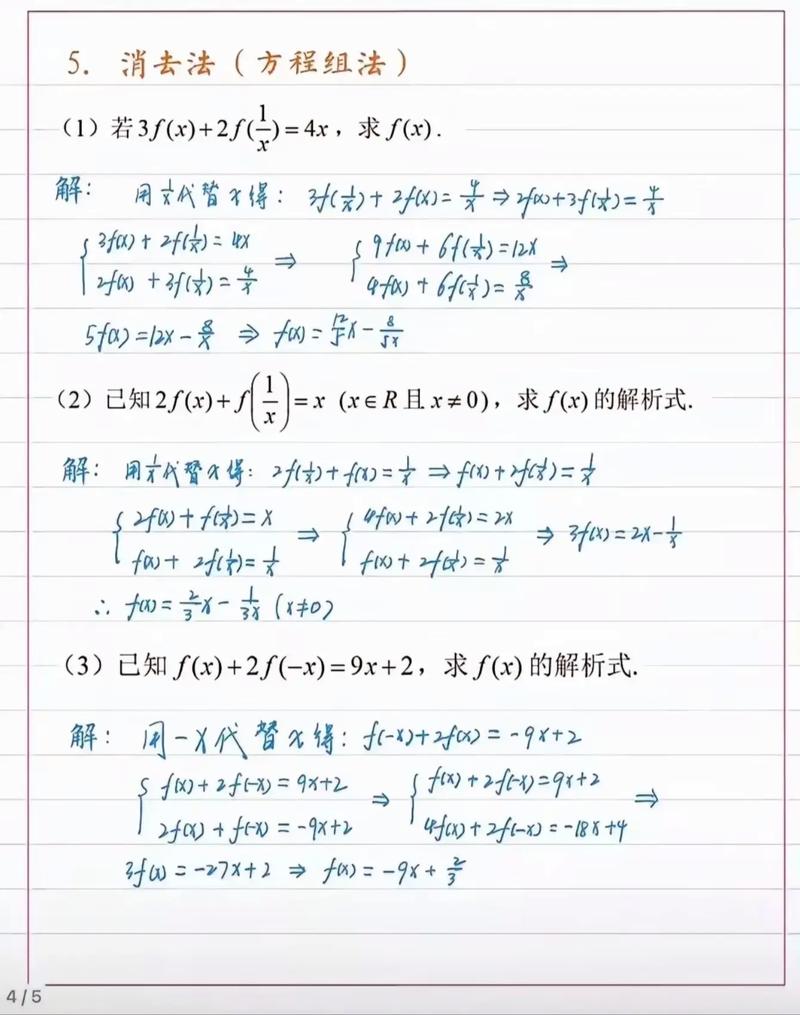 5. 消去法（方程组法）
（1）若3f(x)+2f(1/x)=4x，求f(x).
解： 用1/x代替x得：3f(1/x)+2f(x)=4/x⇒2f(x)+3f(1/x)=4/x
{3f(x)+2f(1/x)=4x ⇒ {9f(x)+6f(1/x)=12x ⇒
2f(x)+3f(1/x)=4/x 4f(x)+6f(1/x)=8/x
5f(x)=12x-8/x ⇒ f(x)=12/5x-8/5x
（2）已知2f(x)+f(1/x)=x (x∈R且x≠0)，求f(x)的解析式.
解：用1/x代替x得：2f(1/x)+f(x)=1/x ⇒f(x)+2f(1/x)=1/x
{2f(x)+f(1/x)=x ⇒ {4f(x)+2f(1/x)=2x ⇒ 3f(x)=2x-1/x
f(x)+2f(1/x)=1/x f(x)+2f(1/x)=1/x
∴ f(x)=2/3x-1/3x (x≠0)
（3）已知f(x)+2f(-x)=9x+2，求f(x)的解析式.
解： 用-x代替x得：f(-x)+2f(x)=-9x+2
{f(x)+2f(-x)=9x+2 ⇒ {f(x)+2f(-x)=9x+2 ⇒
2f(x)+f(-x)=-9x+2 4f(x)+2f(-x)=-18x+4
3f(x)=-27x+2 ⇒ f(x)=-9x+2/3
4/5